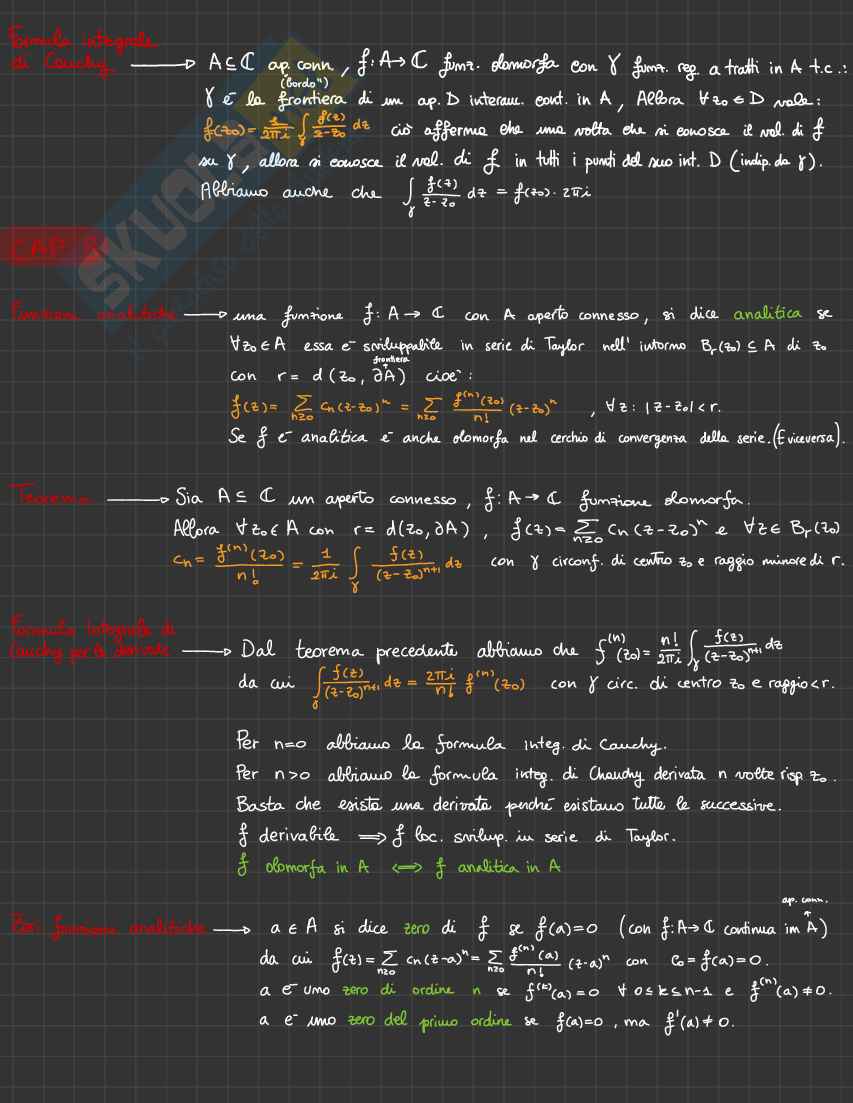 Formula integrale
di Cauchy → A ⊆ ℂ ap. conn, f: A → ℂ funz. olomorfa con γ funz. reg. a tratti in A t.c.:
("bordo")
γ è la frontiera di un ap. D interam. cont. in A, Allora ∀z₀ ∈ D vale:
f(z₀) = 1/2πi ∫_γ f(z)/(z-z₀) dz ciò afferma che una volta che si conosce il val. di f
su γ, allora si conosce il val. di f in tutti i punti del suo int. D (indip. da γ).
Abbiamo anche che ∫_γ f(z)/(z-z₀) dz = f(z₀) · 2πi
SKUOLA
CAP
Funzioni analitiche → una funzione f: A → ℂ con A aperto connesso, si dice analitica se
∀z₀ ∈ A essa è sviluppabile in serie di Taylor nell'intorno B_r(z₀) ⊆ A di z₀
frontiera
con r = d(z₀, ∂A) cioè:
f(z) = Σ_{n≥0} cₙ(z-z₀)ⁿ = Σ_{n≥0} f⁽ⁿ⁾(z₀)/n! (z-z₀)ⁿ , ∀z: |z-z₀| < r.
Se f è analitica è anche olomorfa nel cerchio di convergenza della serie. (E viceversa).
Teorema → Sia A ⊆ ℂ un aperto connesso, f: A → ℂ funzione olomorfa.
Allora ∀z₀ ∈ A con r = d(z₀, ∂A), f(z) = Σ_{n≥0} cₙ(z-z₀)ⁿ e ∀z ∈ B_r(z₀)
cₙ = f⁽ⁿ⁾(z₀)/n! = 1/2πi ∫_γ f(z)/(z-z₀)ⁿ⁺¹ dz con γ circonf. di centro z₀ e raggio minore di r.
Formula Integrale di
Cauchy per le derivate → Dal teorema precedente abbiamo che f⁽ⁿ⁾(z₀) = n!/2πi ∫_γ f(z)/(z-z₀)ⁿ⁺¹ dz
da cui ∫_γ f(z)/(z-z₀)ⁿ⁺¹ dz = 2πi/n! f⁽ⁿ⁾(z₀) con γ circ. di centro z₀ e raggio < r.
Per n=0 abbiamo la formula integ. di Cauchy.
Per n>0 abbiamo la formula integ. di Chauchy derivata n volte risp z₀.
Basta che esista una derivata perché esistano tutte le successive.
f derivabile ⟹ f loc. svilup. in serie di Taylor.
f olomorfa in A ⟺ f analitica in A
ap. conn.
Zeri funzioni analitiche → a ∈ A si dice zero di f se f(a)=0 (con f: A → ℂ continua in A)
da cui f(z) = Σ_{n≥0} cₙ(z-a)ⁿ = Σ_{n≥0} f⁽ⁿ⁾(a)/n! (z-a)ⁿ con c₀ = f(a) = 0.
a è uno zero di ordine n se f⁽ᵏ⁾(a) = 0 ∀ 0≤k≤n-1 e f⁽ⁿ⁾(a) ≠ 0.
a è uno zero del primo ordine se f(a)=0, ma f'(a) ≠ 0.